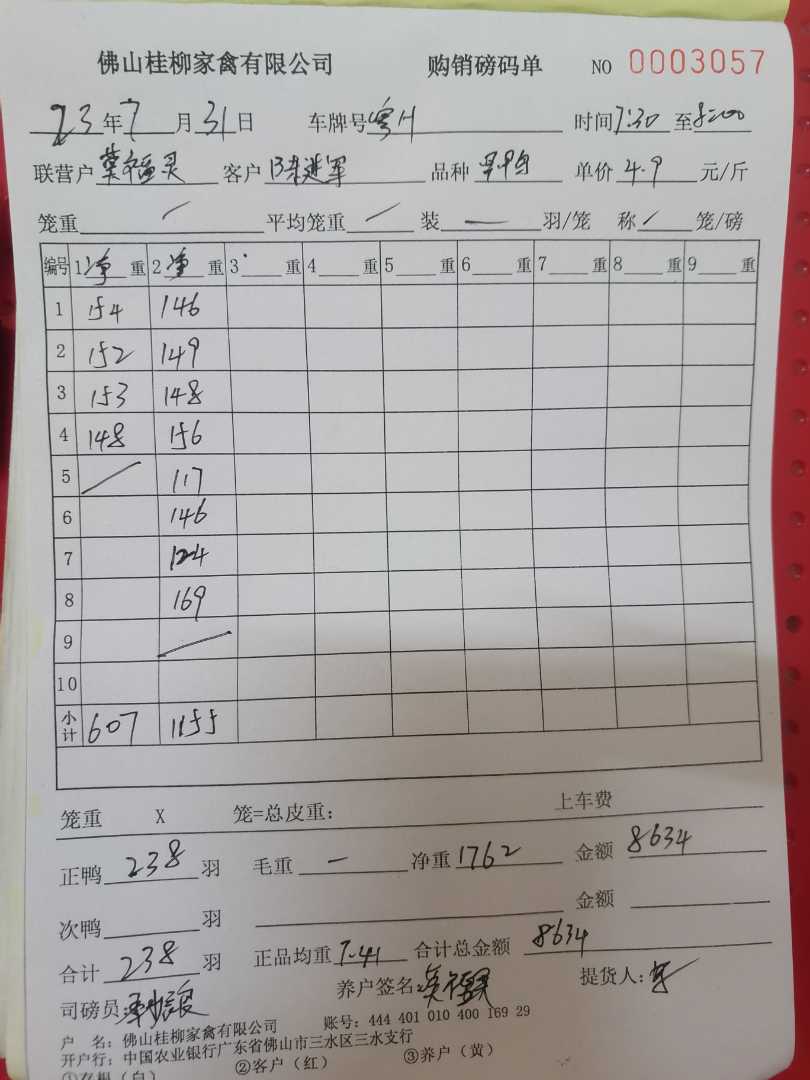 佛山桂柳家禽有限公司 购销磅码单 NO 0003057
23年7月31日 车牌号 时间7:30至8:00
联营户 客户陈进军 品种 单价4.9元/斤
笼重/ 平均笼重/ 装—羽/笼 称/笼/磅
编号 1净重 2净重 3重 4重 5重 6重 7重 8重 9重
1 154 146
2 152 149
3 153 148
4 148 156
5 / 117
6 146
7 124
8 169
9 /
10
小计 607 1155
笼重 X 笼=总皮重: 上车费
正鸭238羽 毛重— 净重1762 金额8634
次鸭 羽 金额
合计238羽 正品均重7.41 合计总金额8634
司磅员: 养户签名: 提货人:
户 名: 佛山桂柳家禽有限公司 账号: 444 401 010 400 169 29
开户行: 中国农业银行广东省佛山市三水区三水支行
①存根(白) ②客户(红) ③养户(黄)